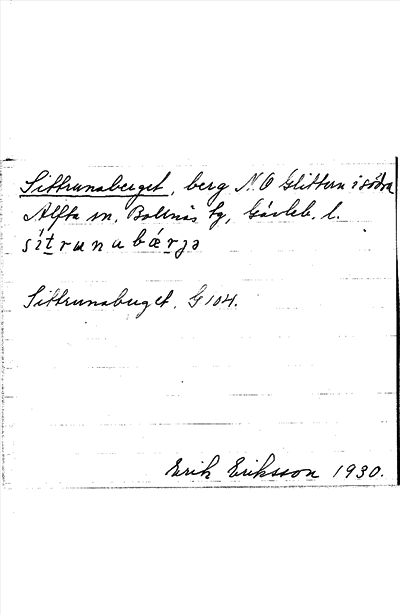 Sittrunaberget, berg N.O Glittern i södra
Alfta sn, Bollnäs tg, Gävleb. l.
sit̠runubǽr̠jə
Sittrunaberget. G 104.
Erik Eriksson 1930.